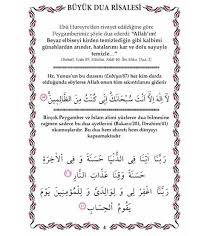 BÜYÜK DUA RİSALESİ
Ebû Hureyre'den rivayet edildiğine göre
Peygamberimiz şöyle dua ederdi: "Allah'ım!
Beyaz elbiseyi kirden temizlediğin gibi kalbimi
günahlardan arındır, hatalarımı kar ve dolu suyuyla
temizle..."
Hz. Yunus'un bu duasını (Enbiya/87) her kim darda
olduğunda söylerse Allah onun tüm sıkıntılarını giderir
لَا إِلٰهَ إِلَّا أَنْتَ سُبْحَانَكَ إِنِّي كُنْتُ مِنَ الظَّالِمِينَ
Birçok Peygamber ve İslam alimi yüzlerce dua bilmesine
rağmen sadece bu dua ayetlerini (Bakara/201, İbrahim/41)
okumuşlardır. Bu dua hem ahireti hem dünyayı
kapsamaktadır
رَبَّنَا آتِنَا فِي الدُّنْيَا حَسَنَةً وَ فِي الْآخِرَةِ
حَسَنَةً وَقِنَا عَذَابَ النَّارِ
رَبَّنَا اغْفِرْ لِي وَ لِوَالِدَيَّ وَ لِلْمُؤْمِنِينَ يَوْمَ
يَقُومُ الْحِسَابُ
4